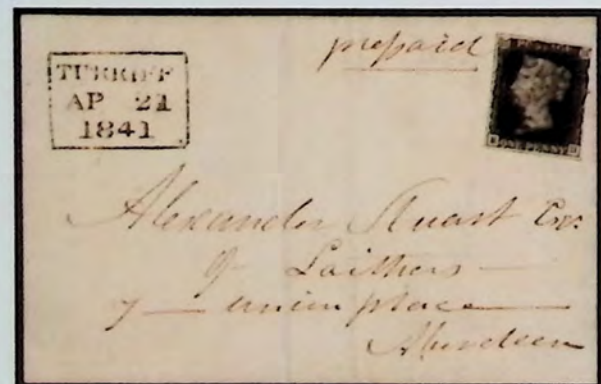 prepaid
TURRIFF
AP 21
1841
ONE PENNY
Alexander Stuart Esqr
of Laithers
7 — union place
Aberdeen